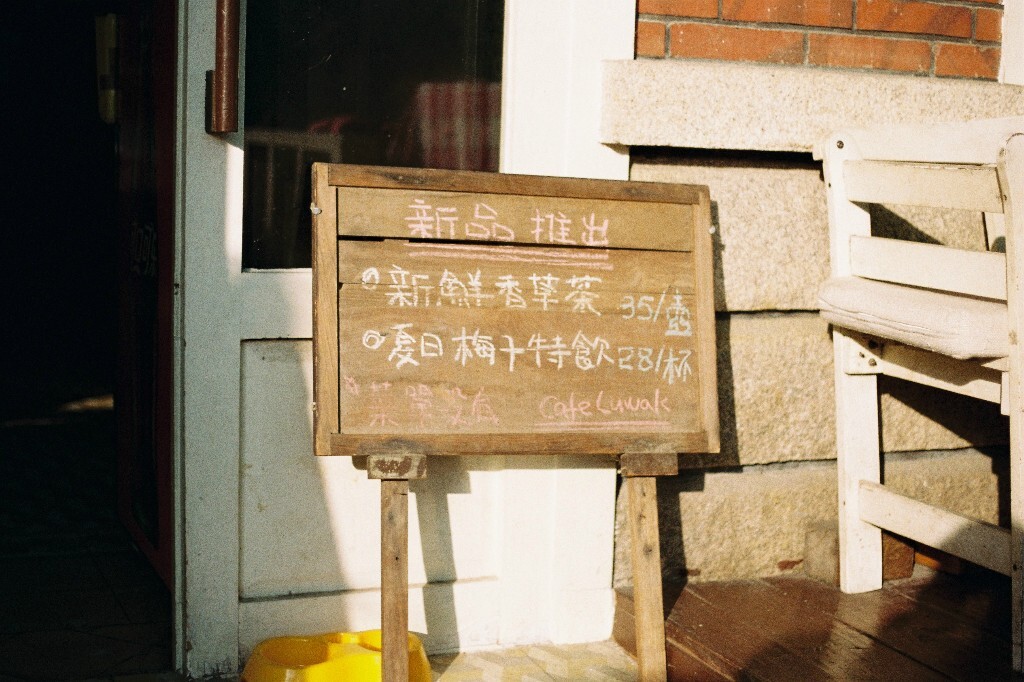 新品推出
新鮮香草茶 35/壺
夏日梅十特飲 28/杯
Cafe Luwak